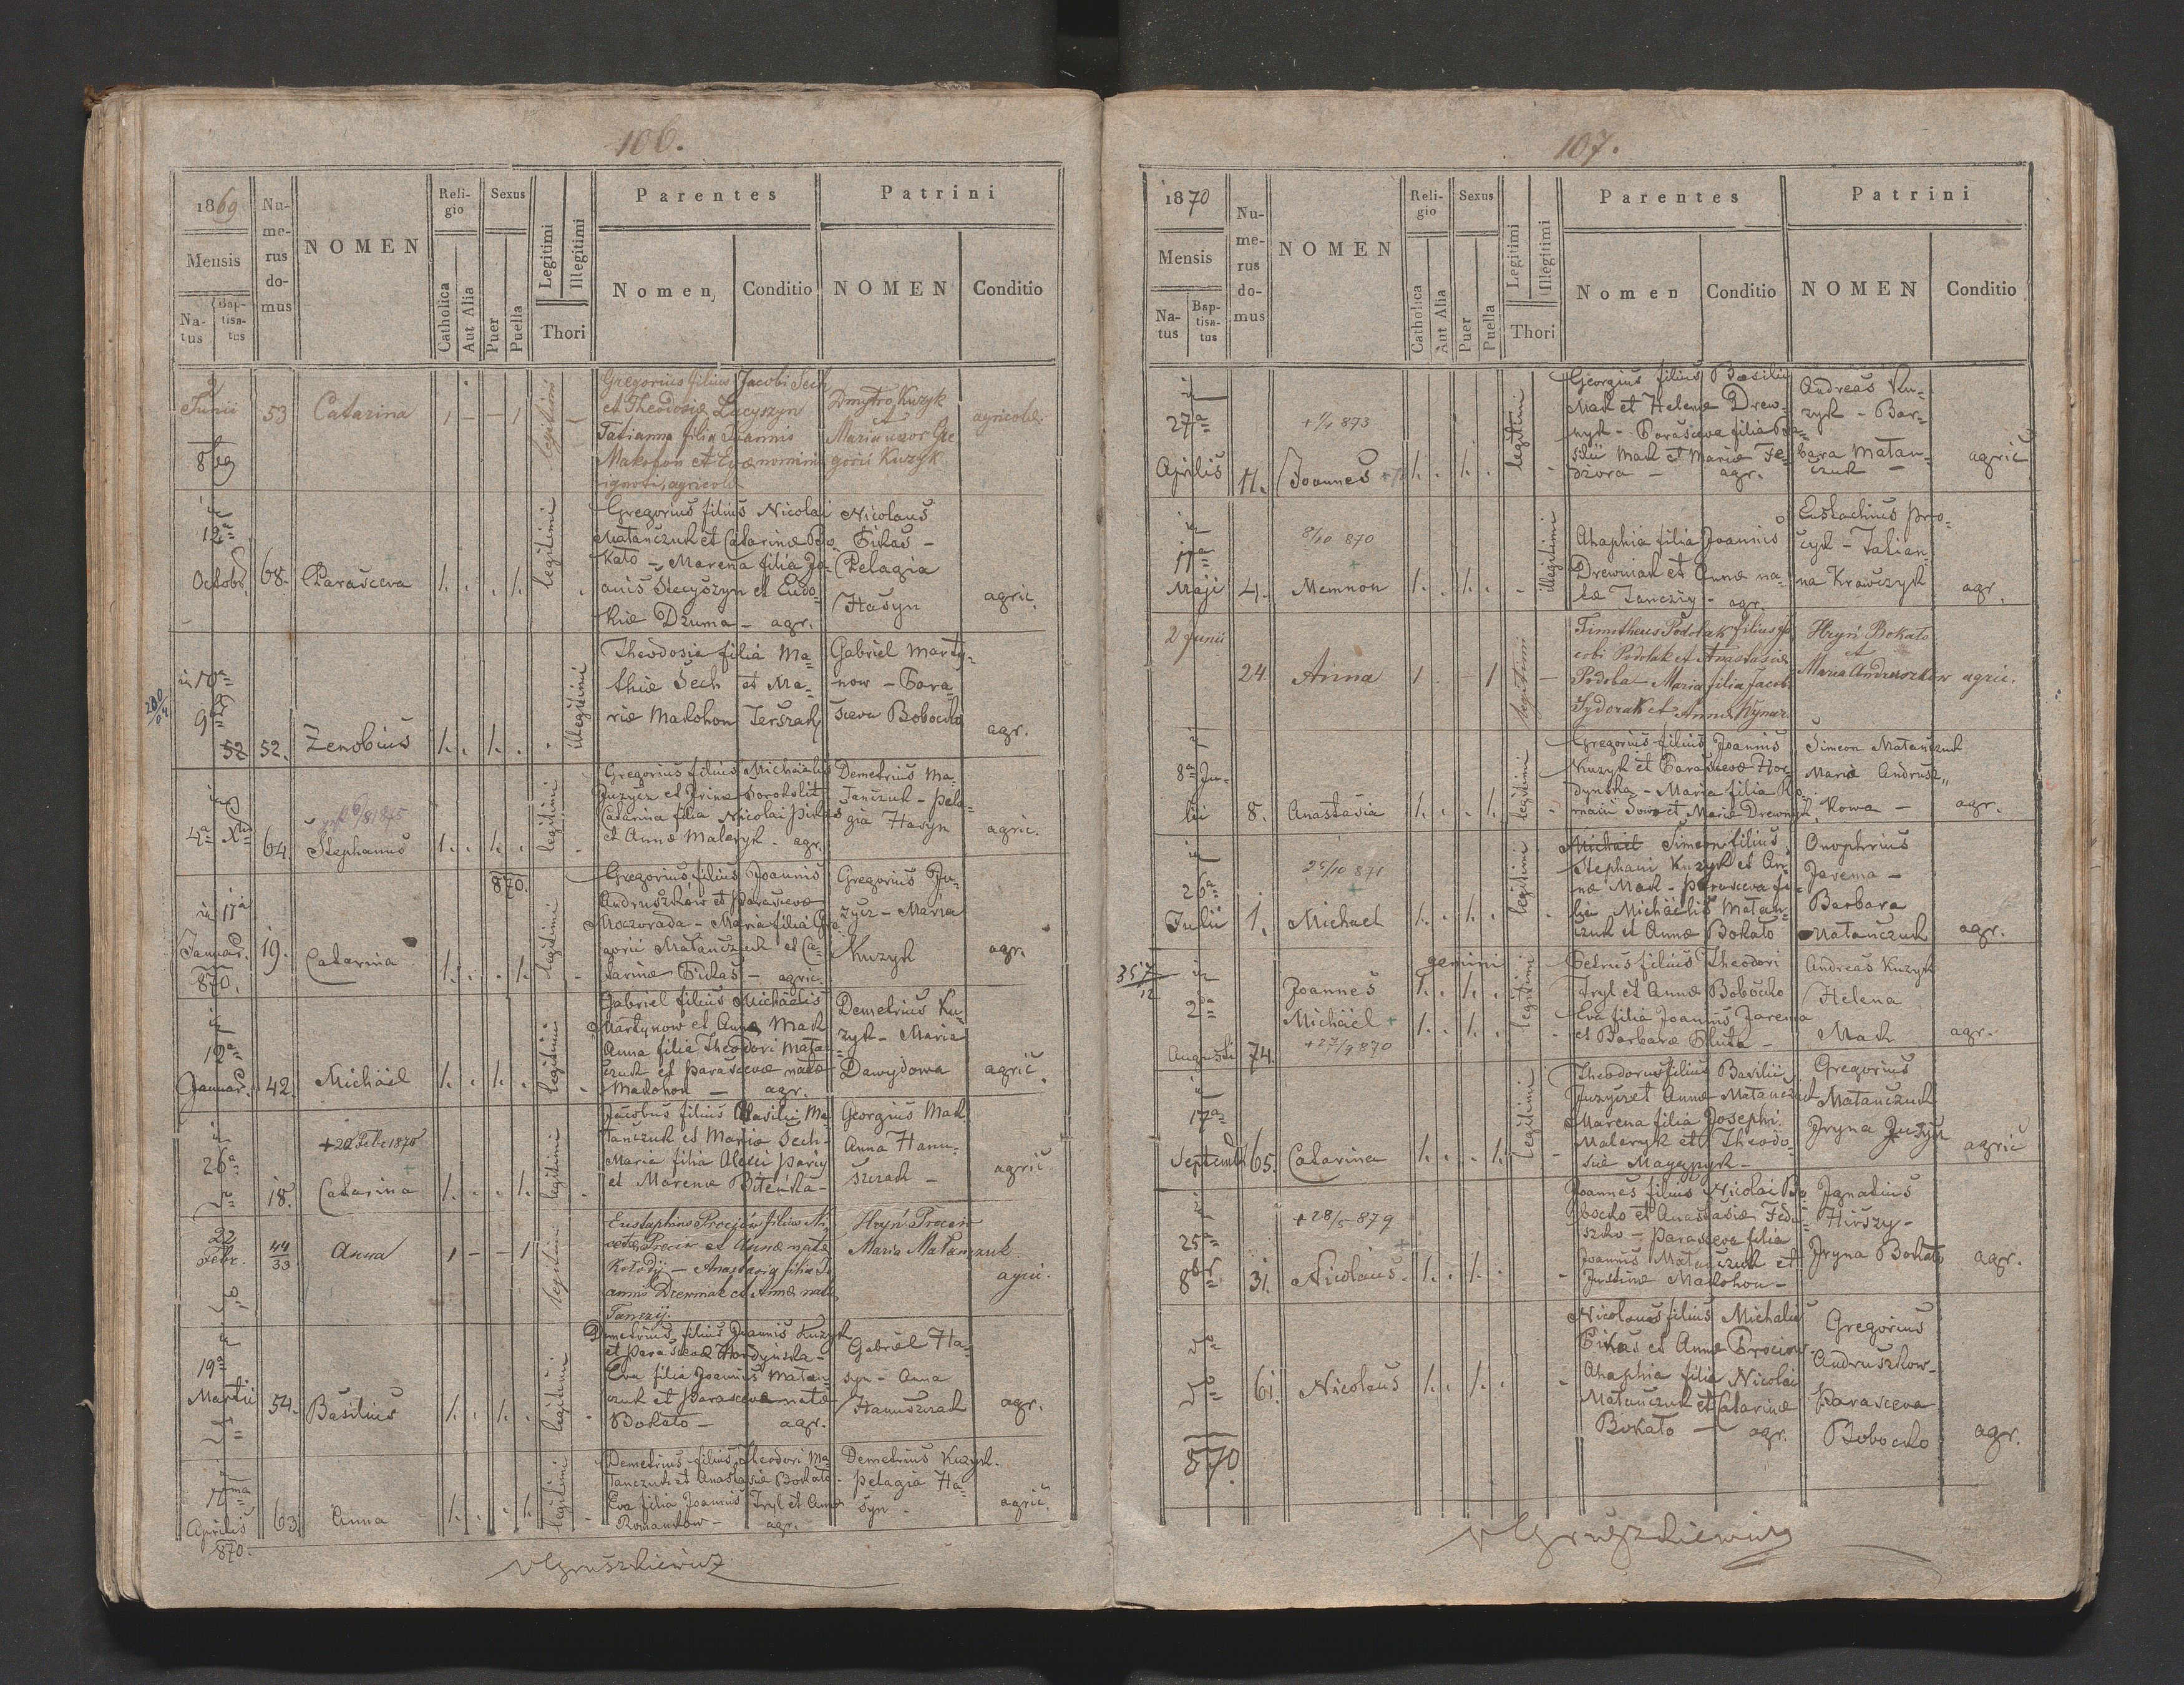 106.
1869
Nu-
me-
rus
do-
mus
NOMEN
Reli-
gio
Sexus
Legitimi
Illegitimi
Thori
Parentes
Patrini
Mensis
Na-
tus
Bap-
tisa-
tus
Catholica
Aut Alia
Puer
Puella
Nomen,
Conditio
NOMEN
Conditio
2
Junii
869
53
Catarina
1 - - 1
legitimi
Gregorius filius Jacobi Sech
et Theodosiæ Lucyszyn
Tatianna filia Joannis
Makohon et Evæ nominis
ignoti, agricolæ
Dmytro Kuzyk
et
Maria uxor Gre
gorii Kuzyk
agricolæ.
12a
Octobr.
68.
Parasceva
1. . . 1.
legitimi
Gregorius filius Nicolai
Matańczuk et Catarinæ Bo
kało - Marena filia Jo-
anis Stecyszyn et Eudo-
kiæ Dzuma - agr.
Nicolaus
Fikas -
Pelagia
Hasyn
agric.
in 10a
9a
52
52.
Zenobius
1. . 1. .
illegitimi
Theodosia filia Ma-
thiæ Sech et Ma-
riæ Makohon Jerszak
Gabriel Marty-
now - Para-
sceva Bobocko
agr.
in
4a Xbr
64.
Stephanus
1. . 1. .
legitimi
Gregorius filius Michaelis
Juzycz et Irinæ Sorokolit
Catarina filia Nicolai Fikas
et Annæ Maleryk - agr.
Demetrius Ma-
tańczuk - Pela-
gia Hasyn
agric.
870.
in 17a
Januar.
870.
19.
Catarina
1. . . 1.
legitimi
Gregorius filius Joannis
Andruszków et Parascevæ
Moczorada - Maria filia Gre
gorii Matańczuk et Ca-
tarinæ Fikas - agric.
Gregorius Ju-
zycz - Maria
Kuzyk
agr.
in
19a
Januar.
42.
Michäel
1. . 1. .
legitimi
Gabriel filius Michäelis
Martynow et Annæ Mack
Anna filia Theodori Matań-
czuk et Parascevæ natæ
Makohon - agr.
Demetrius Ku-
zyk - Maria
Dawydowa
agric.
in
26a
18.
+20 Febr 1875
Catarina
1. . . 1.
legitimi
Jacobus filius Basilii Ma-
tańczuk et Mariæ Sech-
Maria filia Alexii Pariy
et Marenæ Biteńska -
Georgius Mak
Anna Hanu-
szczak -
agric
22
Febr.
44
33
Anna
1 - - 1
legitimi
Eustaphius Prociów filius Ni-
cetæ Prociw et Annæ natæ
Kołodij - Anastasia filia Jo
annis Drewniak et Annæ natæ
Tanczij.
Hryń Prociw
Maria Matańczuk
agric.
in
19a
Martii
54.
Basilius
1. . 1. .
legitimi
Demetrius filius Joannis Kuzyk
et Parascevæ Hordyńska -
Eva filia Joannis Matań-
czuk et Parascevæ natæ
Bokało - agr.
Gabriel Ha-
syn - Anna
Hanuszczak
agr.
Aprilis
870.
63.
Anna
1. . . 1.
legitimi
Demetrius filius Theodori Ma-
tańczuk et Anastasiæ Bokało
Eva filia Joannis Tryl et Annæ
Romanków - agr.
Demetrius Kuzyk.
Pelagia Ha-
syn -
agric.
Gruszkiewicz
107.
1870
Nu-
me-
rus
do-
mus
NOMEN
Reli-
gio
Sexus
Legitimi
Illegitimi
Thori
Parentes
Patrini
Mensis
Na-
tus
Bap-
tisa-
tus
Catholica
Aut Alia
Puer
Puella
Nomen
Conditio
NOMEN
Conditio
in
27a
Aprilis
11.
+ 1/4 873
Joannes
1. . 1. .
legitimi
Georgius filius Basilii
Mak et Helenæ Drew-
nyk - Parasceva filia Ba-
silii Mak et Mariæ Fe-
dziora - agr.
Andreas Ku-
zyk - Bar-
bara Matań-
czuk -
agric
in
17a
Maji
4.
8/10 870
Memnon
1. . 1. .
illegitimi
Ahaphia filia Joannis
Drewniak et Annæ na-
tæ Tanczij - agr.
Eustachius Pro-
cyk - Tatian-
na Krawczyk
agr.
2 Junii
24
Anna
1 . - 1
legitimi
Timotheus Podolak filius Ja
cobi Podolak et Anastasiæ
Podola - Maria filia Jacobi
Sydorak et Annæ Wynar
Hryń Bokało
et
Maria Andruszków
agric.
in
8a Ju-
lii
8.
Anastasia
1. . . 1.
legitimi
Gregorius filius Joannis
Kuzyk et Parascevæ Hor-
dyńska - Maria filia Ro
mani Sowa et Mariæ Drewnyk
Simeon Matańczuk
Maria Andrusz-
kowa -
agr.
in
26a
Julii
1.
25/10 871
Michael
1. . 1. .
legitimi
Michael Simeon filius
Stephani Kuzyk et An-
næ Mak - Parasceva fi-
lia Michäelis Matań-
czuk et Annæ Bokało
Onophrius
Jarema -
Barbara
Matańczuk
agr.
in
2a
Augusti
74.
gemini
Joannes
1. . 1. .
Michäel +
1. . 1. .
+27/9 870
legitimi
Petrus filius Theodori
Tryl et Annæ Bobocko
Eva filia Joannis Jarema
et Barbaræ Pluta -
Andreas Kuzyk
Helena
Mak
agr.
in
17a
Septembr
65.
Catarina
1. . . 1.
legitimi
Theodorus filius Basilii
Juzycz et Annæ Matańczuk
Marena filia Josephi
Maleryk et Theodo-
siæ
Gregorius
Matańczuk
Iryna
agric
in
25a
8br
31.
+28/5 879
Nicolaus.
1. . 1. .
Joannes filius Nicolai Bo
bocko et Anastasiæ Fedu-
szko - Parasceva filia
Joannis Matańczuk et
Justinæ Makohon -
Ignatius
Hirszy -
Iryna Bokało
agr.
870.
61
Nicolaus
1. . 1. .
Nicolaus filius Michalis
Fikas et Annæ Prociow
Ahaphia filia Nicolai
Matańczuk et Catarinæ
Bokało - agr.
Gregorius
Andruszkow-
Parasceva
Bobocko
agr.
Gruszkiewicz